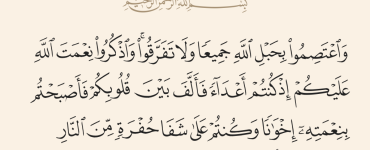 بِسْمِ اللَّهِ الرَّحْمَٰنِ الرَّحِيمِ
وَاعْتَصِمُوا بِحَبْلِ اللَّهِ جَمِيعًا وَلَا تَفَرَّقُوا ۚ وَاذْكُرُوا نِعْمَتَ اللَّهِ
عَلَيْكُمْ إِذْ كُنْتُمْ أَعْدَاءً فَأَلَّفَ بَيْنَ قُلُوبِكُمْ فَأَصْبَحْتُمْ
بِنِعْمَتِهِ إِخْوَانًا وَكُنْتُمْ عَلَىٰ شَفَا حُفْرَةٍ مِنَ النَّارِ